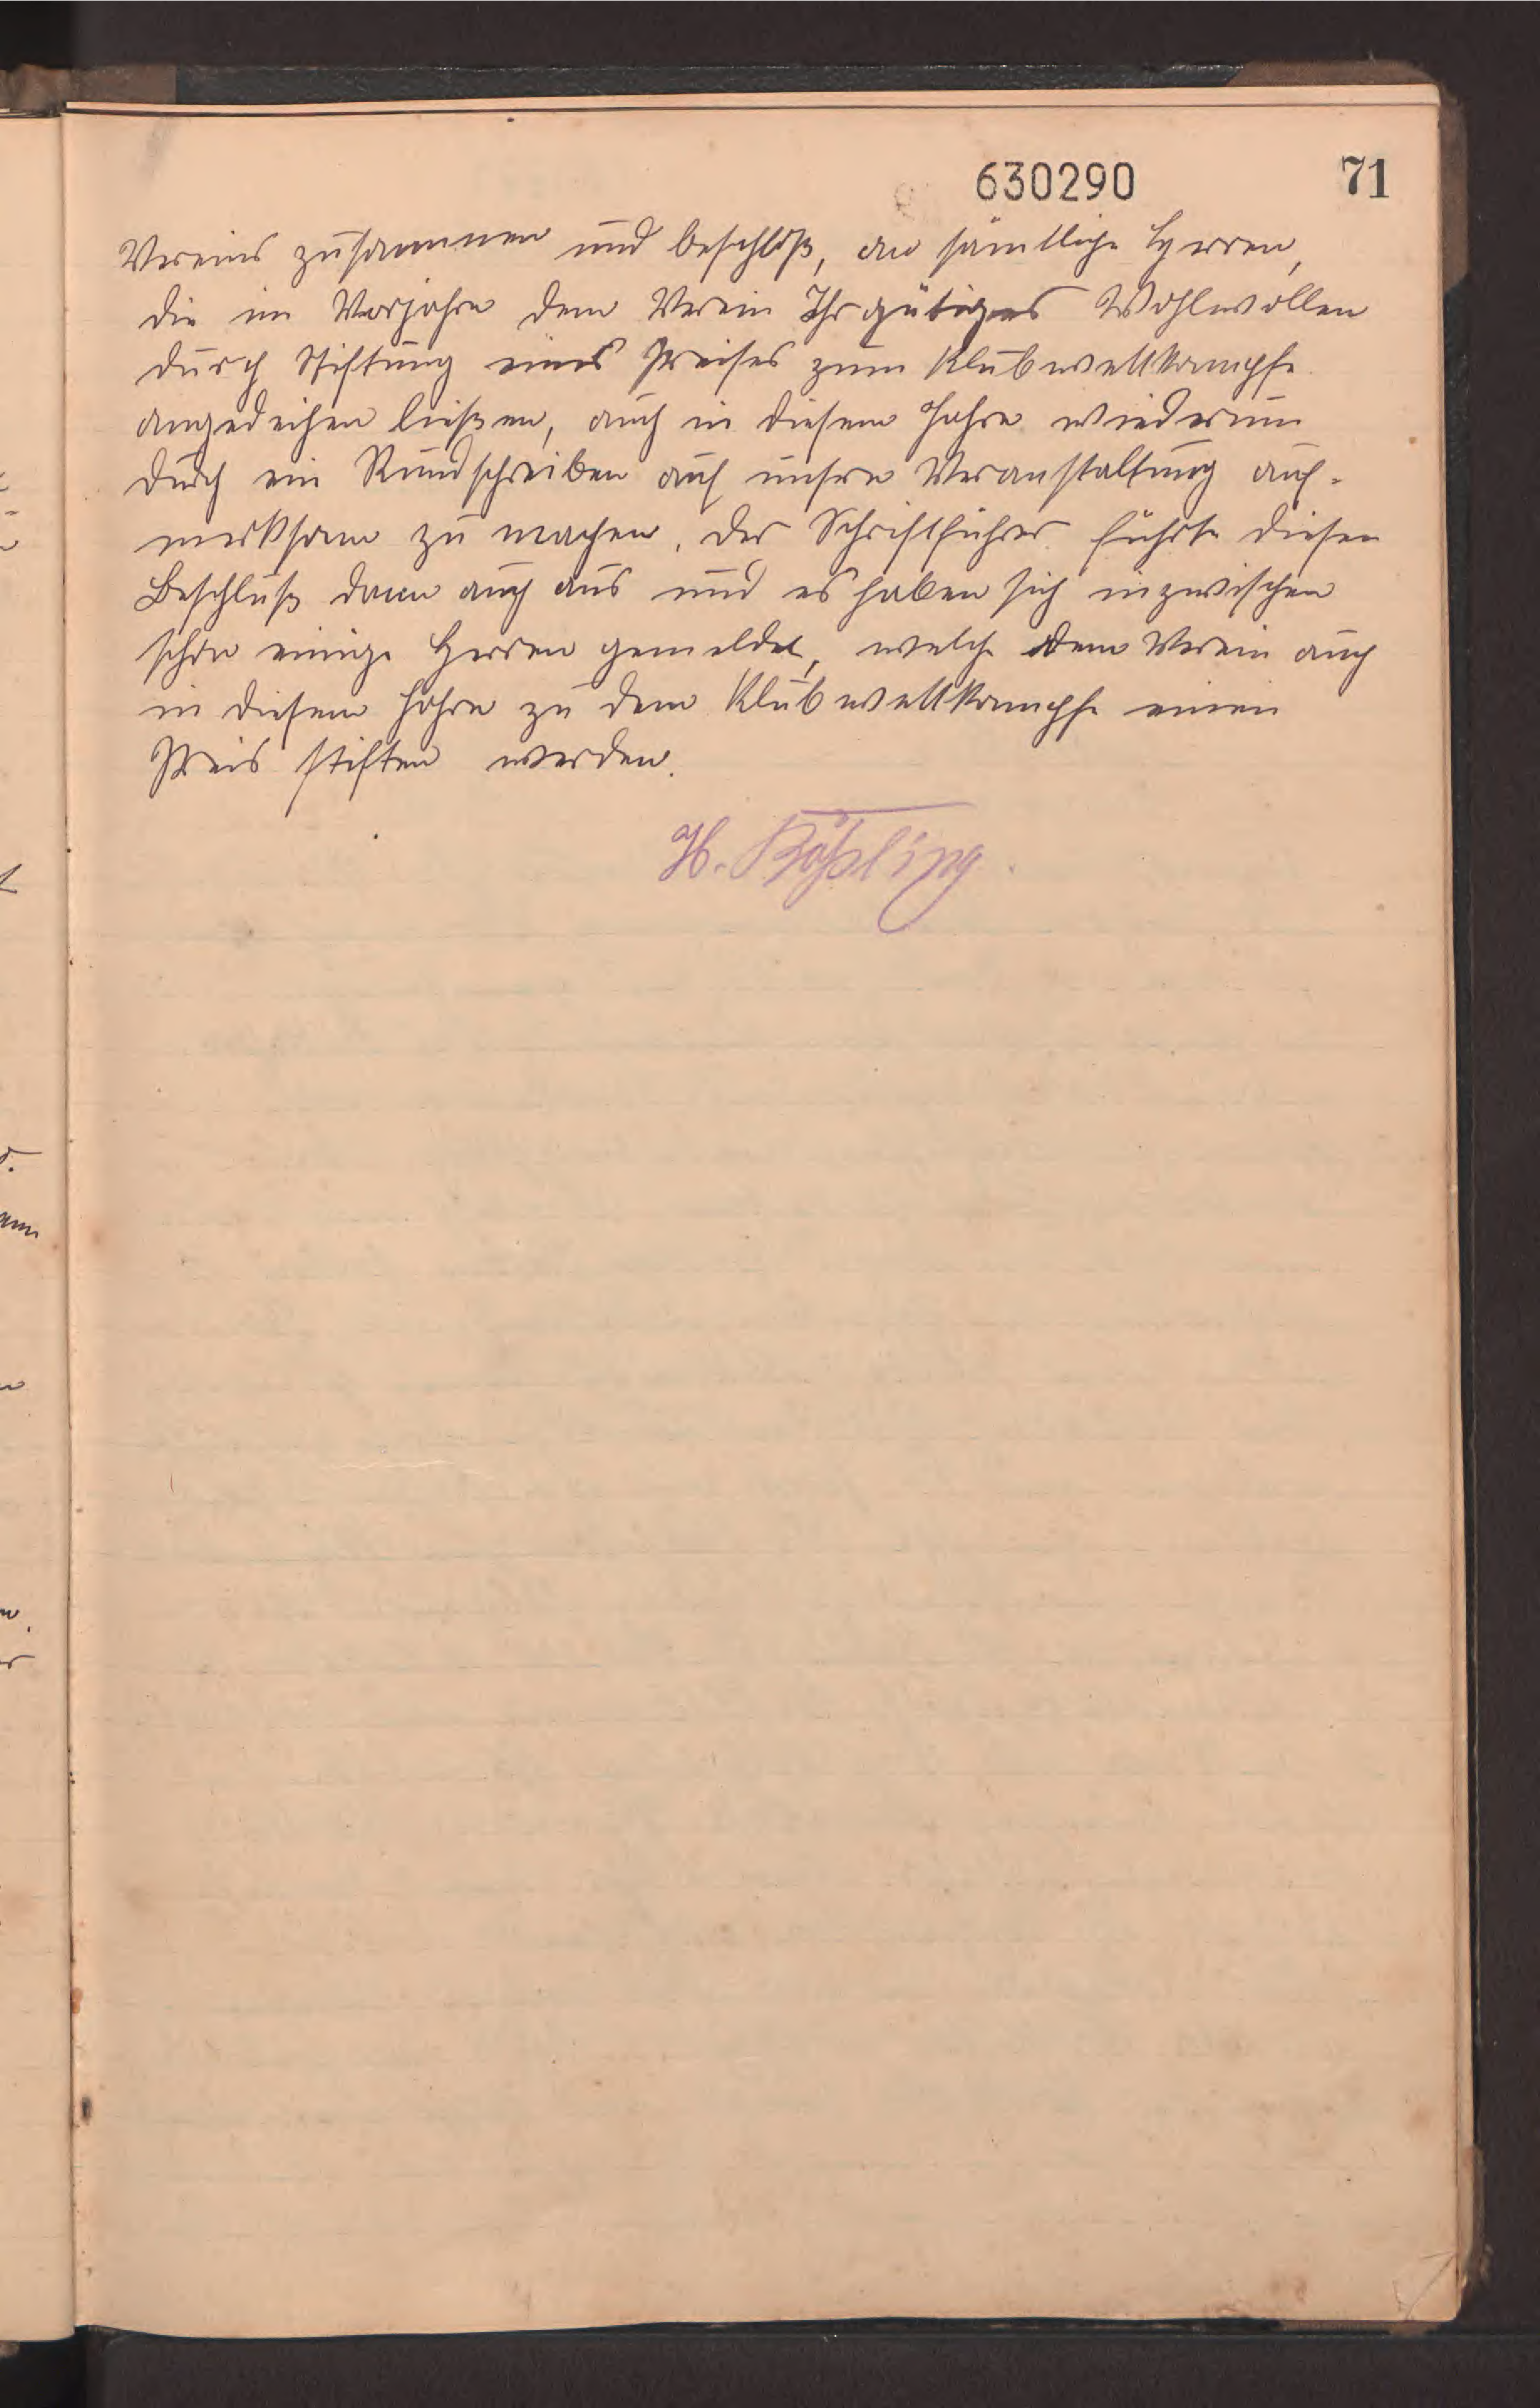 630290
71
Vereins zusammen und beschloß, an sämtliche Herren,
die im Vorjahre dem Verein Ihr gütiges Wohlwollen
durch Stiftung eines Preises zum Klubwettkampfe
angedeihen ließen, auch in diesem Jahre wiederum
durch ein Rundschreiben auf unsere Veranstaltung auf-
merksam zu machen. Der Schriftführer führte diesen
Beschluß dann auch aus und es haben sich inzwischen
schon einige Herren gemeldet, welche dem Verein auch
in diesem Jahre zu dem Klubwettkampfe einen
Preis stiften werden.
H. Rößling